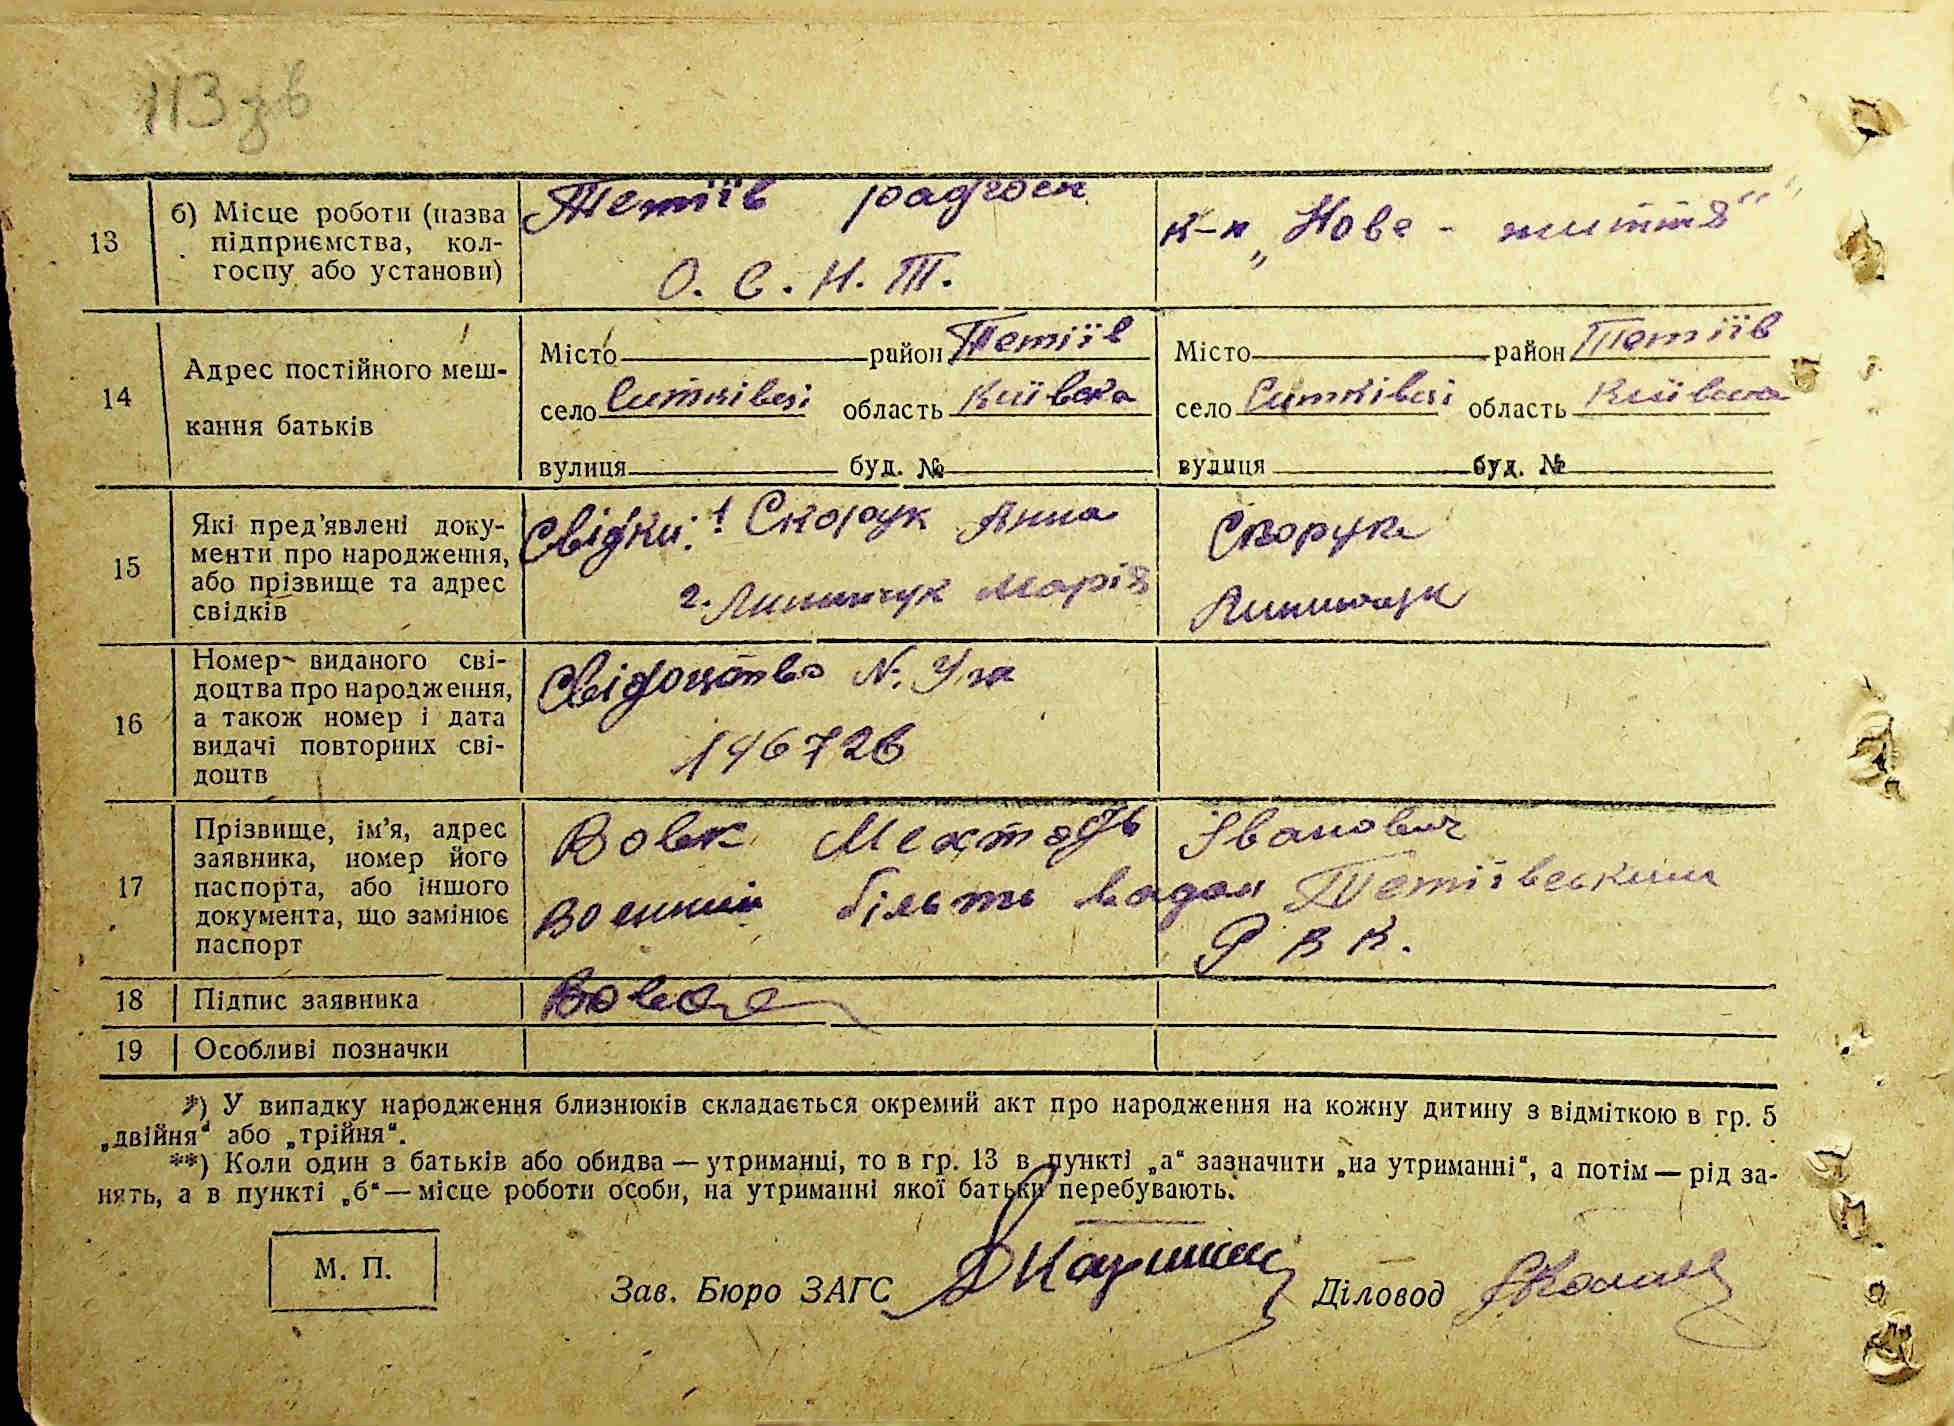 113 зв
13
б) Місце роботи (назва
підприємства, кол-
госпу або установи)
Тетіїв радгосп
О. С. Н. Т.
к-п „Нове - життя"
14
Адрес постійного меш-
кання батьків
Місто район Тетіїв
село Ситківці область Київска
вулиця буд. №
Місто район Тетіїв
село Ситківці область Київска
вулиця буд. №
15
Які пред’явлені доку-
менти про народження,
або прізвище та адрес
свідків
Свідки: 1 Скорук Анна
2. Линничук Марія
Скорук
16
Номер виданого сві-
доцтва про народження,
а також номер і дата
видачі повторних сві-
доцтв
Свідоцтво N.
146726
17
Прізвище, ім’я, адрес
заявника, номер його
паспорта, або іншого
документа, що замінює
паспорт
Вовк Іванович
военний білеть Тетіївським
Р В К.
18
Підпис заявника
19
Особливі позначки
*) У випадку народження близнюків складається окремий акт про народження на кожну дитину з відміткою в гр. 5
„двійня“ або „трійня“.
**) Коли один з батьків або обидва — утриманці, то в гр. 13 в пункті „а“ зазначити „на утриманні“, а потім — рід за-
нять, а в пункті „б“ — місце роботи особи, на утриманні якої батьки перебувають.
М. П.
Зав. Бюро ЗАГС
Діловод